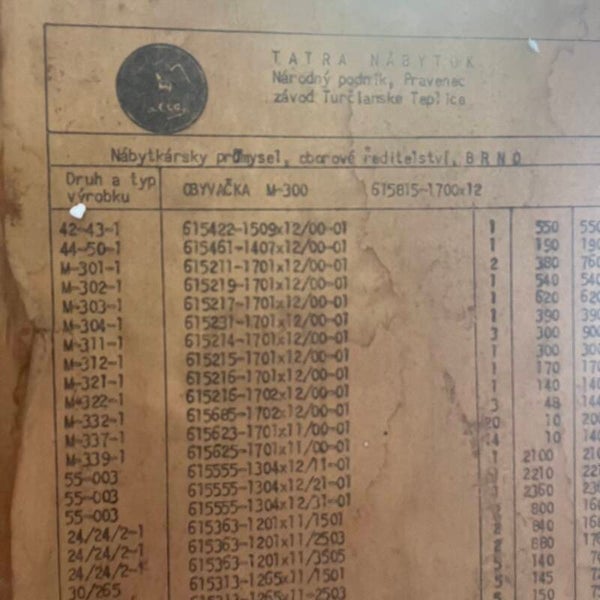 TATRA NÁBYTOK
Národný podnik, Pravenec
závod Turčianske Teplice
Nábytkársky průmysel, oborové ředitelství, BRNO
Druh a typ výrobku OBYVAČKA M-300 615815-1700x12
42-43-1 615422-1509x12/00-01 1 550 550
44-50-1 615461-1407x12/00-01 1 190 190
M-301-1 615211-1701x12/00-01 2 380 760
M-302-1 615219-1701x12/00-01 1 540 540
M-303-1 615217-1701x12/00-01 1 620 620
M-304-1 615231-1701x12/00-01 1 390 390
M-311-1 615214-1701x12/00-01 3 300 900
M-312-1 615215-1701x12/00-01 1 300 300
M-321-1 615216-1701x12/00-01 1 170 170
M-322-1 615216-1702x12/00-01 1 140 140
M-332-1 615685-1702x12/00-01 3 48 144
M-337-1 615623-1701x11/00-01 20 10 200
M-339-1 615625-1701x11/00-01 14 10 140
55-003 615555-1304x12/11-01 1 2100 210
55-003 615555-1304x12/21-01 2210 221
55-003 615555-1304x12/31-01 2360 236
24/24/2-1 615363-1201x11/1501 800
24/24/2-1 615363-1201x11/2503 840
24/24/2-1 615363-1201x11/3505 880
30/265 615313-1265x11/1501 140
615313-1265x11/2503 145
150